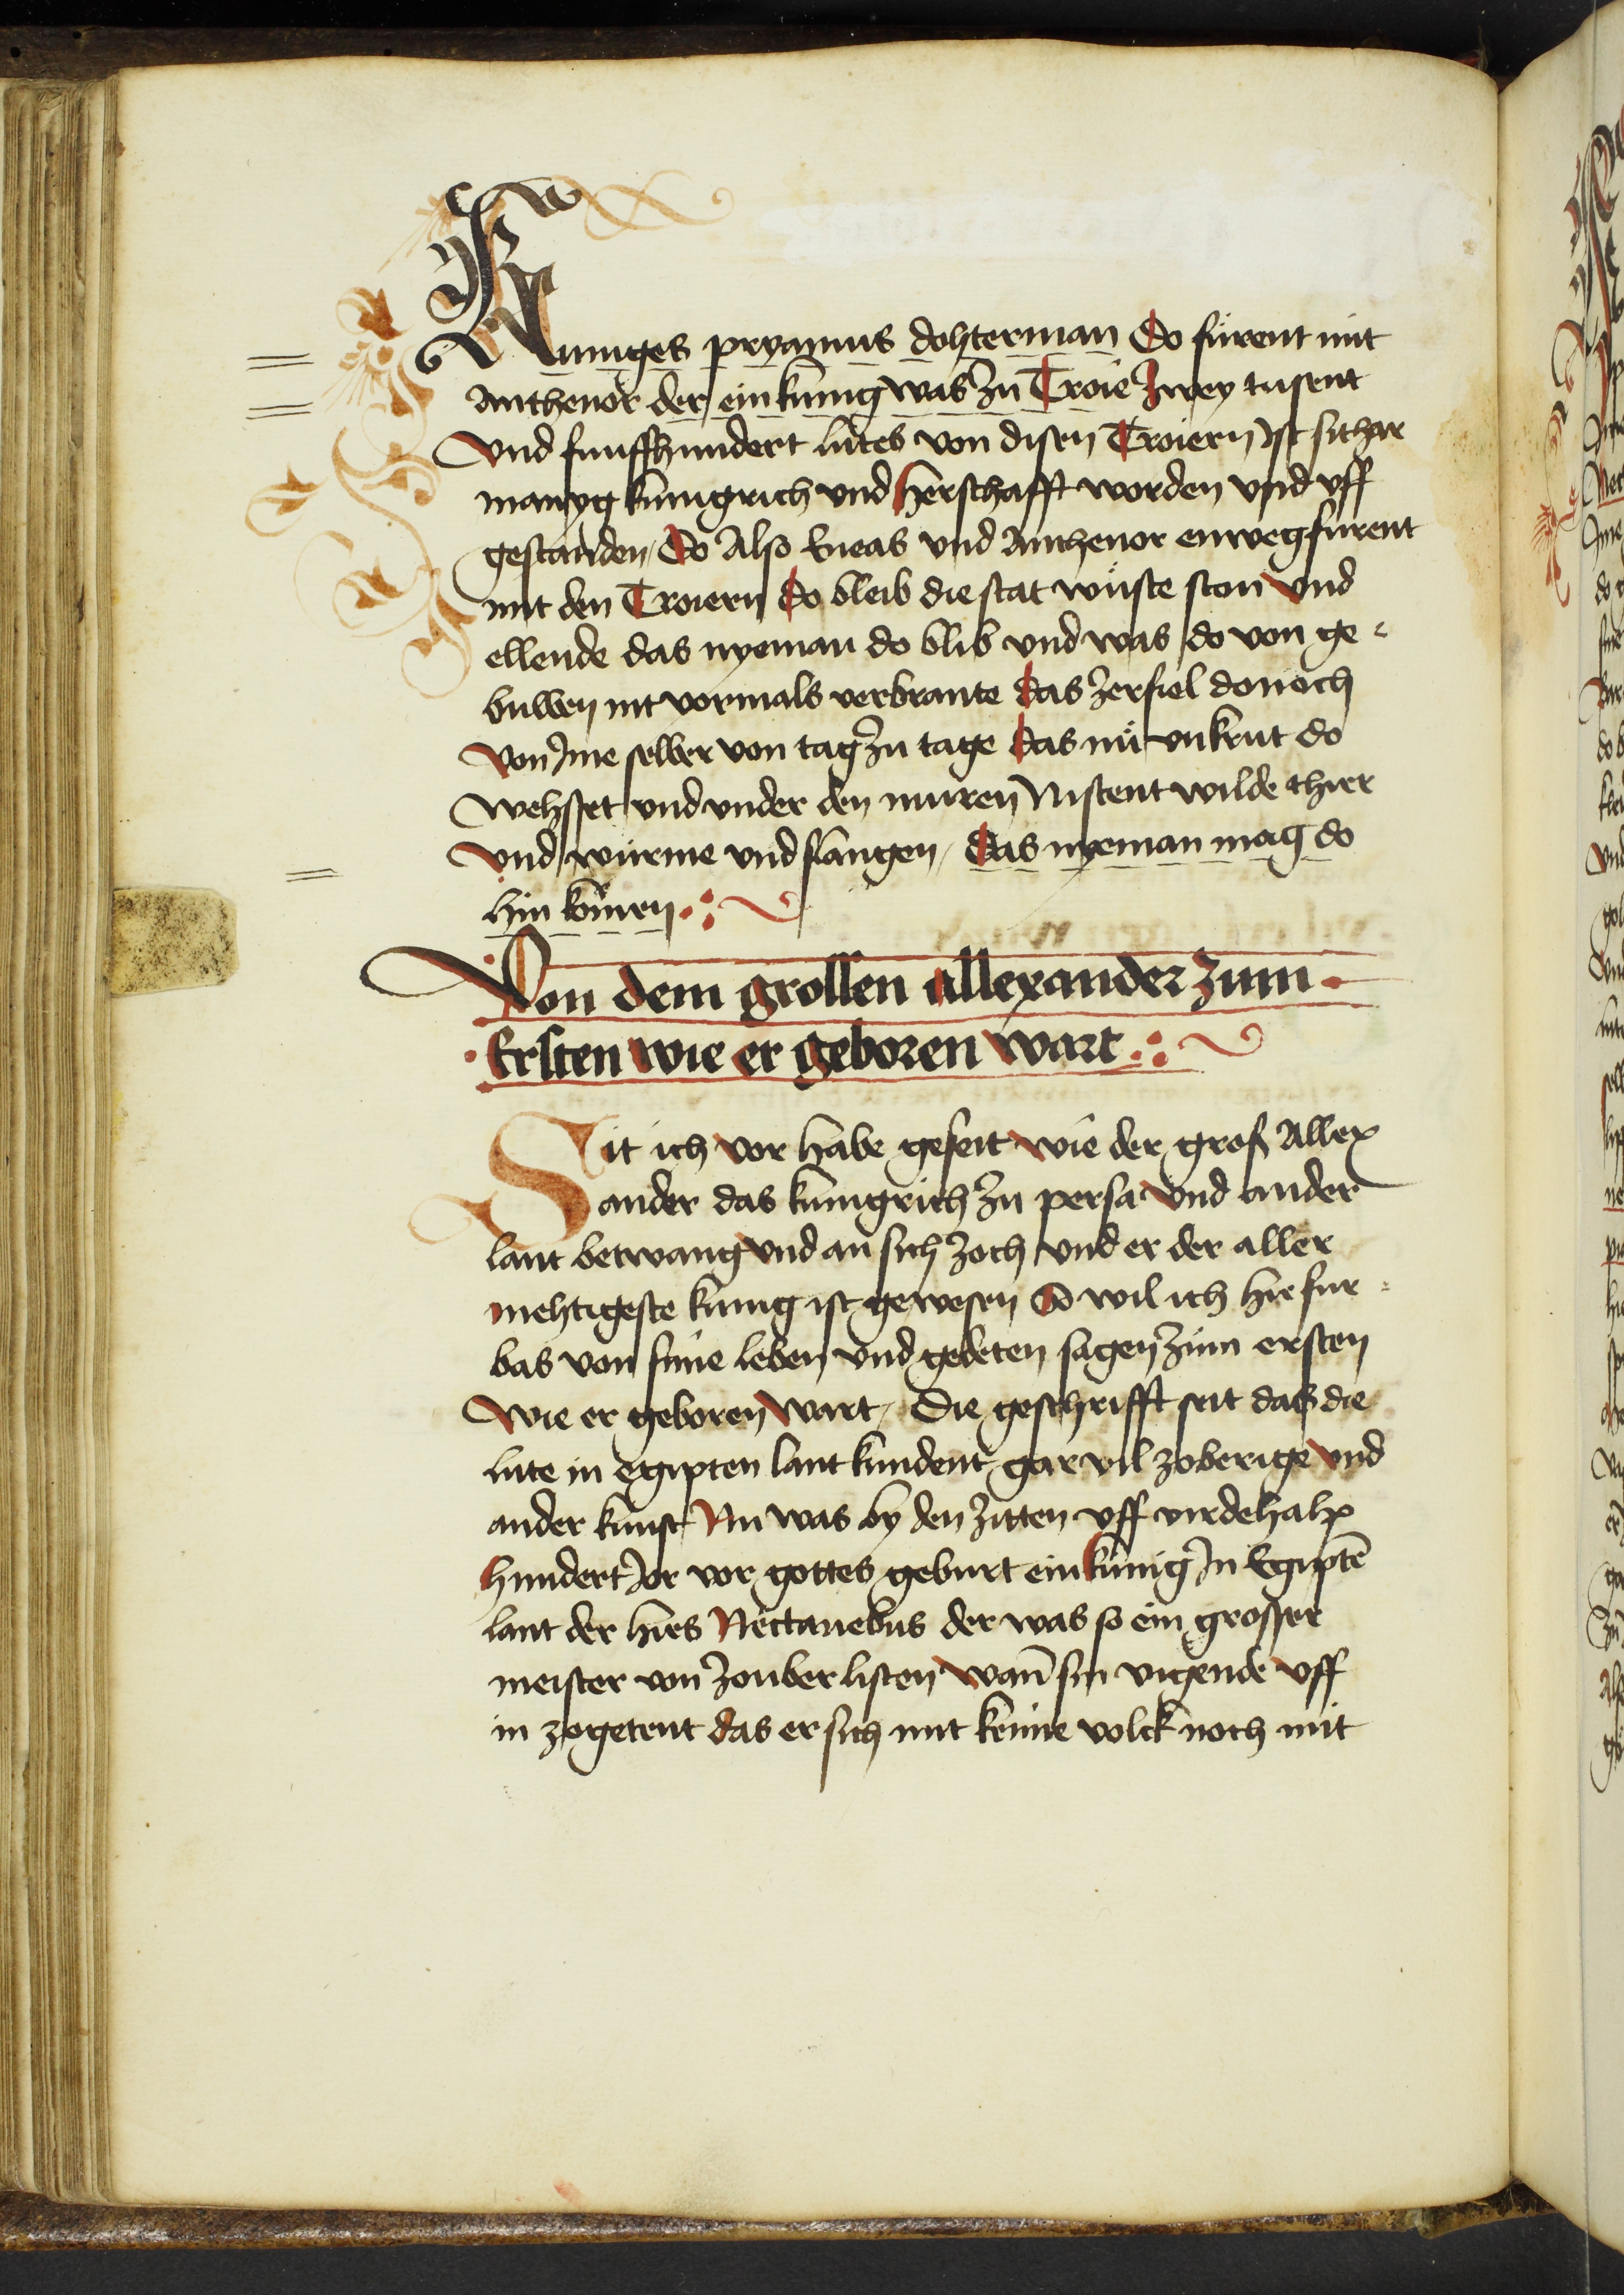 Kuniges pryamus dohterman Do furent mit
Anthenor der ein kunig was Zu Troie Zwey tusent
Vnd funffhundert lutes von disen Troiern Ist sithar
manyg kunigrich vnd Herschafft worden vnd vff
gestanden, Do Also Eneas vnd Anthenor enweg furent
mit den Troiern Do bleib die stat wüste ston Vnd
ellende das nyeman do blib vnd was do von ge-
buwen nit vormals verbrante Das Zerfiel donoch
Von Ime selber von tag Zu tage Das nü vnkrut do
Wehsset vnd vnder den muren Nistent wilde thier
Vnd würme vnd slangen, Das nyeman mag do
hin kömen
Von dem grossen allexander zum
Ersten wie er geboren wart
Sit ich vor habe geseit wie der groß Allex
ander das kunigrich Zu persa Vnd ander
lant betwang Vnd an sich Zoch vnd er der aller
mehtigeste kunig ist gewesen So wil ich hie fur-
bas von sime leben vnd gedeten sagen Zum ersten
Wie er geboren Wart, Die geschrifft seit das die
lute in Egipten lant kundent gar vil zoberige Vnd
ander kunst Nu was by den Zitten vff virdehalp
hundert Jor vor gottes geburt ein kunig In Egiptē
lant der hies Nectanebus der was so ein grosser
meister von Zouber listen Wan̄ sin vigende vff
in zogetent das er sich mit keime volck noch mit